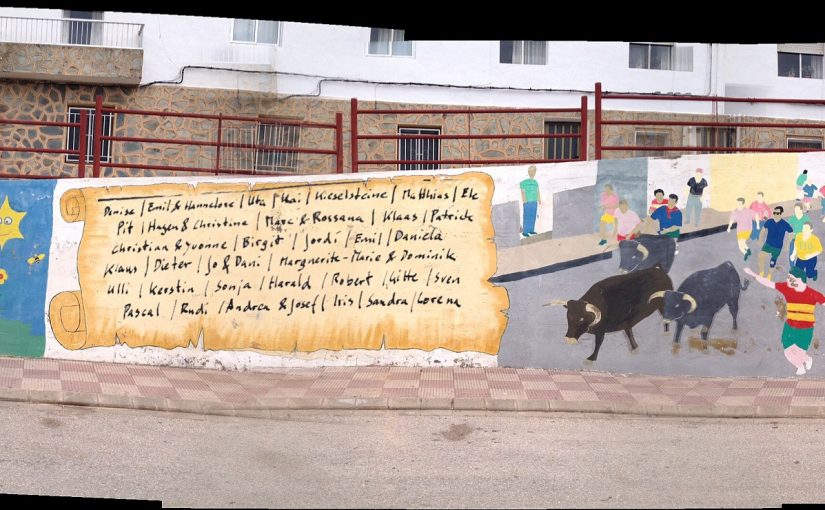 Denise / Emil & Hannelore / Uta / Kai / Kieselsteine / Matthias / Ele
Pit / Hagen & Christina / Marc & Rossana / Klaas / Patrick
Christian & Yvonne / Birgit / Jordi / Emil / Daniela
Klaus / Dieter / Jo & Dani / Margnerite-Marie & Dominik
Ulli / Kerstin / Sonja / Harald / Robert / Gitte / Sven
Pascal / Rudi / Andrea & Josef / Iris / Sandra / Lorena